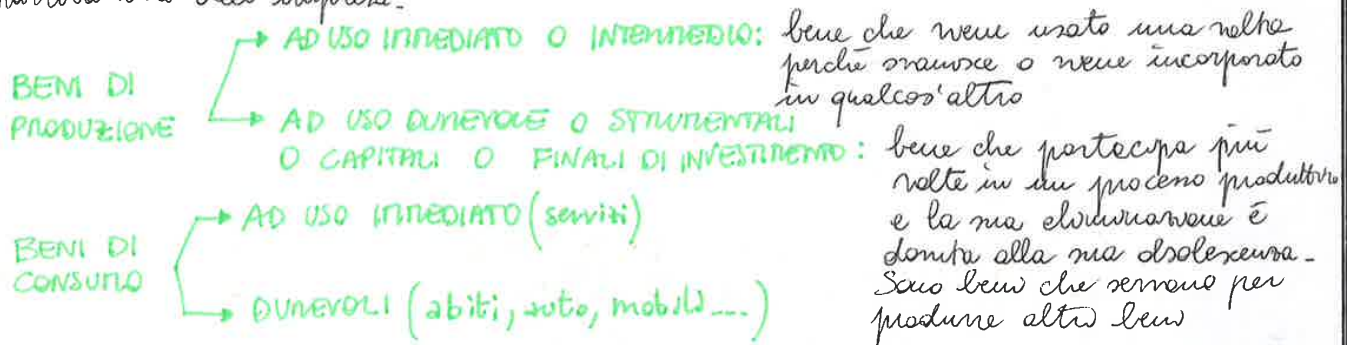 BENI DI
PRODUZIONE
AD USO IMMEDIATO O INTERMEDIO: bene che viene usato una volta
perché svanisce o viene incorporato
in qualcos'altro
AD USO DUREVOLE O STRUMENTALI
O CAPITALI O FINALI DI INVESTIMENTO: bene che partecipa più
volte in un processo produttivo
e la sua eliminazione è
dovuta alla sua obsolescenza.
Sono beni che servono per
produrre altri beni
BENI DI
CONSUMO
AD USO IMMEDIATO (servizi)
DUREVOLI (abiti, auto, mobili....)